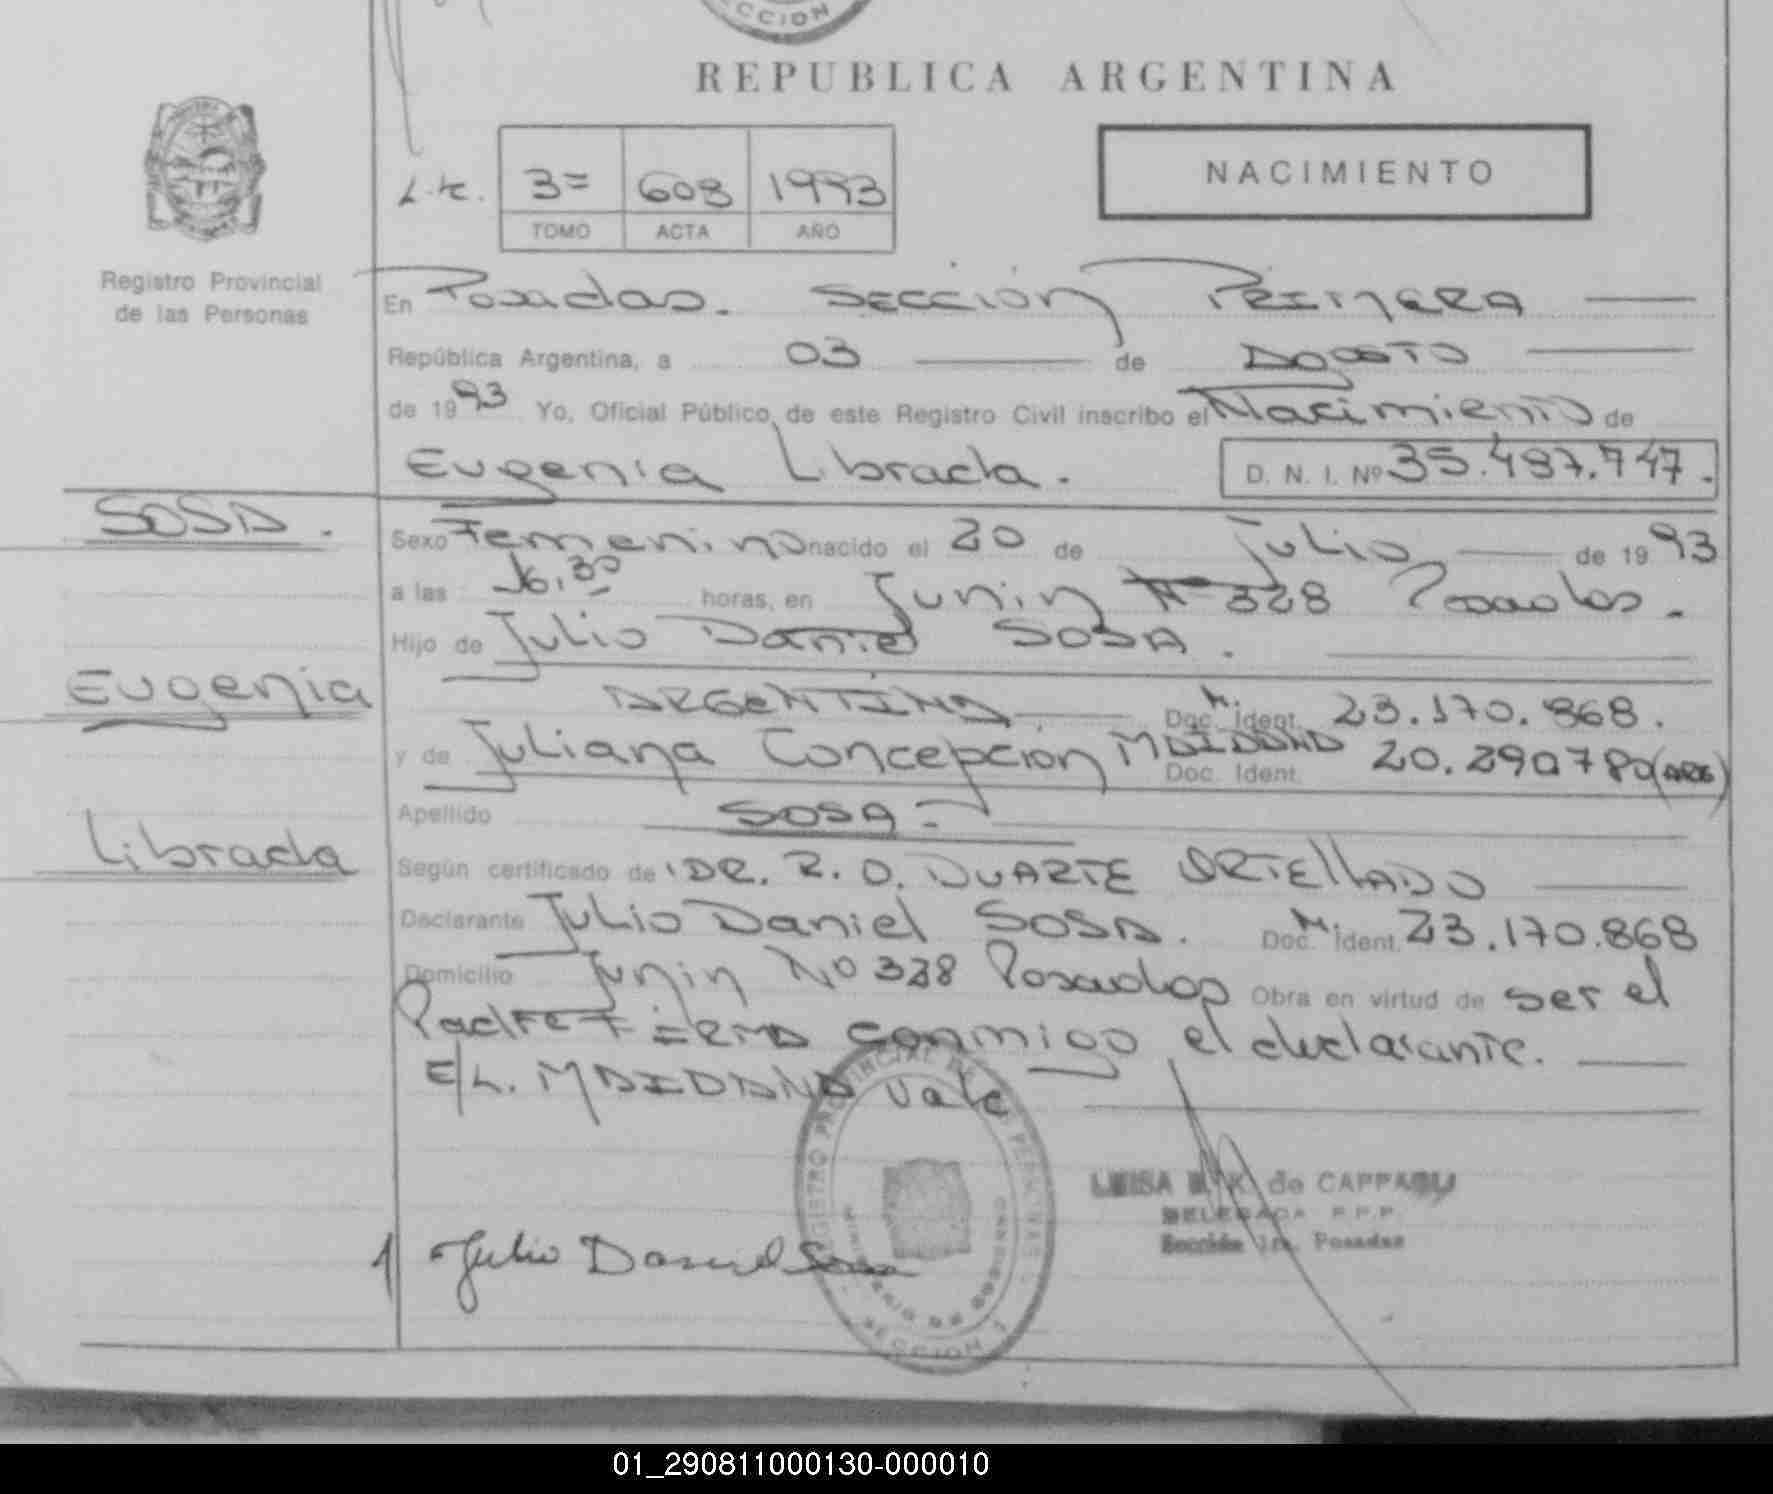 CCION
REPUBLICA ARGENTINA
NACIMIENTO
3= 608 1993
TOMO ACTA AÑO
Registro Provincial
de las Personas
En Posadas. Sección Primera
República Argentina, a 03 de Agosto
de 1993 Yo, Oficial Público de este Registro Civil inscribo el Nacimiento de
Eugenia Librada. D. N. I. Nº 35.487.747.
SOSA.
Sexo Femenino nacido el 20 de Julio de 1993
a las 16,30 horas, en Junin Nº 328 Posadas.
Hijo de Julio Daniel SOSA.
Eugenia
ARGENTINA M. Doc. Ident. 23.170.868.
y de Juliana Concepción MAIDANA Doc. Ident. 20.290780 (ARG)
Apellido SOSA-
Librada
Según certificado de DR. R. O. DUARTE ORTELLADO
Declarante Julio Daniel SOSA. M. Doc. Ident. 23.170.868
Domicilio Junin Nº 328 Posadas Obra en virtud de ser el
Padre FIRMA conmigo el declarante.
E/L. MAIDANA Vale
REGISTRO PROVINCIAL DE LAS PERSONAS
MINISTERIO DE GOBIERNO
SECCION 1
LUISA de CAPPAGLI
DELEGADA R.P.P.
Sección 1ra. Posadas
Julio Daniel Sosa
01_290811000130-000010